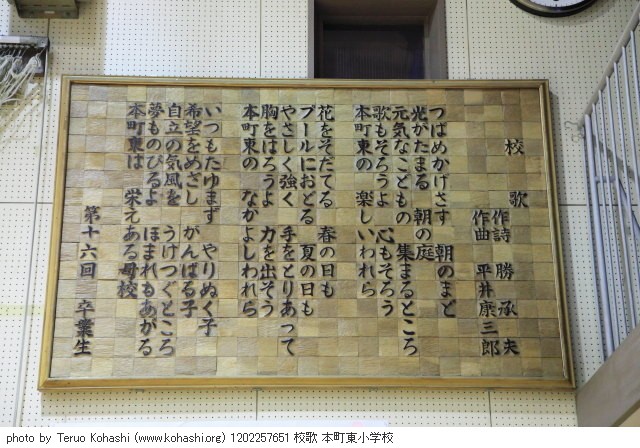 校歌
作詩 勝承夫
作曲 平井康三郎
つばめかげさす 朝のまど
光がたまる 朝の庭
元気なこどもの 集まるところ
歌もそろうよ 心もそろう
本町東の 楽しいわれら
花をそだてる 春の日も
プールにおどる 夏の日も
やさしく強く 手をとりあって
胸をはろうよ 力を出そう
本町東の なかよしわれら
いつもたゆまず やりぬく子
希望をめざし がんばる子
自立の気風を うけつぐところ
夢ものびるよ ほまれもあがる
本町東は 栄えある母校
第十六回 卒業生
photo by Teruo Kohashi (www.kohashi.org) 1202257651 校歌 本町東小学校